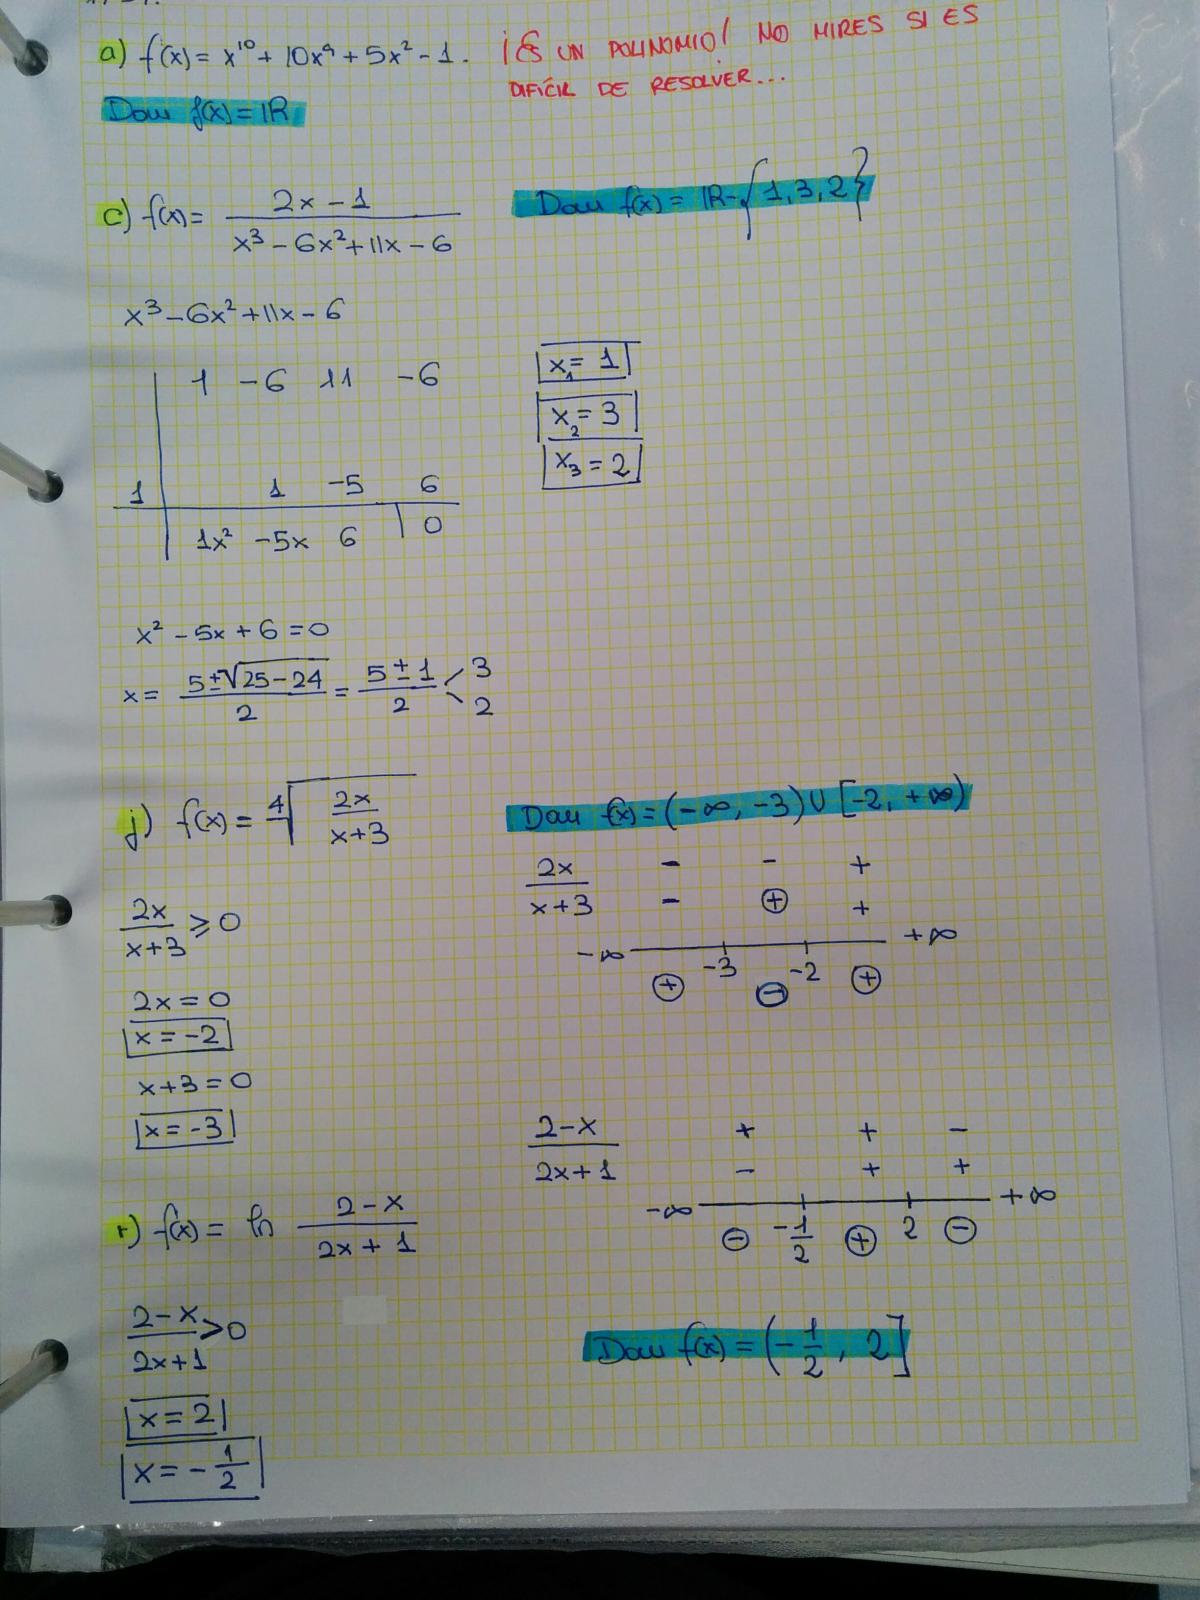 a) f(x) = x¹⁰ + 10x⁹ + 5x² - 1. ¡ES UN POLINOMIO! NO MIRES SI ES
DIFÍCIL DE RESOLVER...
Dom f(x) = ℝ
c) f(x) = (2x - 1)/(x³ - 6x² + 11x - 6) Dom f(x) = ℝ - {1, 3, 2}
x³ - 6x² + 11x - 6
1 -6 11 -6
1 1 -5 6
1x² -5x 6 | 0
x₁ = 1
x₂ = 3
x₃ = 2
x² - 5x + 6 = 0
x = (5 ± √(25 - 24))/2 = (5 ± 1)/2 < 3
2
j) f(x) = ⁴√(2x/(x+3)) Dom f(x) = (-∞, -3) ∪ [-2, +∞)
2x/(x+3) ≥ 0
2x = 0
x = -2
x + 3 = 0
x = -3
2x - - +
x+3 - ⊕ +
-∞ -3 -2 +∞
⊕ ⊖ ⊕
r) f(x) = ln (2-x)/(2x+1)
(2-x)/(2x+1) > 0
x = 2
x = -1/2
2-x + + -
2x+1 - + +
-∞ -1/2 2 +∞
⊖ ⊕ ⊖
Dom f(x) = (-1/2, 2]